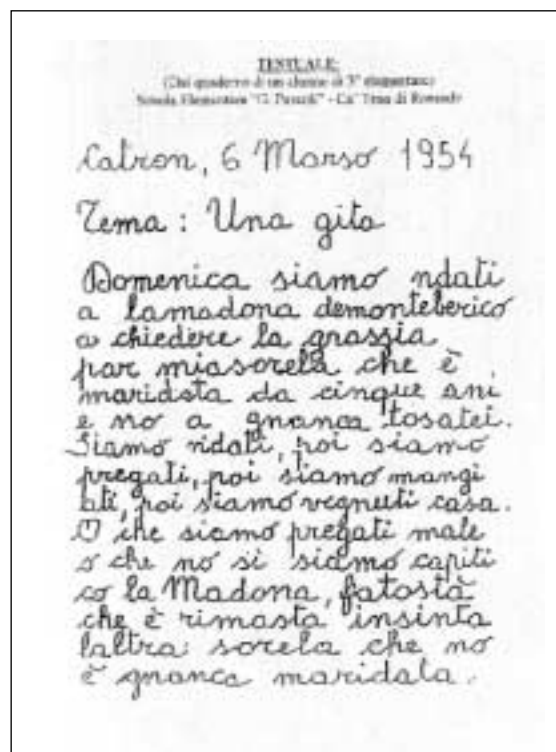 TESTUALE:
(Dal quaderno di un alunno di 3ª elementare)
Scuola Elementare "G. Pascoli" - Ca' Tron di Roncade
Catron, 6 Marso 1954
Tema : Una gita
Domenica siamo ndati
a lamadona demonteberico
a chiedere la grassia
par miasorela che è
maridata da cinque ani
e no a gnanca tosatei.
Siamo ndati, poi siamo
pregati, poi siamo mangi
ati, poi siamo vegnuti casa.
O che siamo pregati male
o che no si siamo capiti
co la Madona, fatostà
che è rimasta insinta
laltra sorela che no
è gnanca maridata.